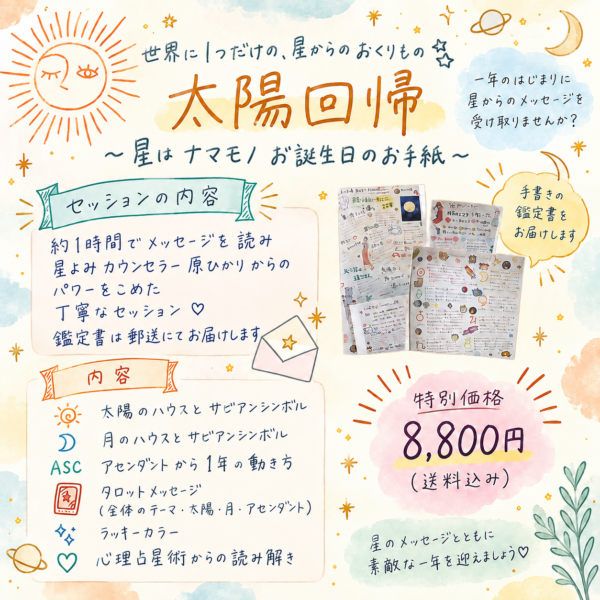 世界に1つだけの、星からのおくりもの
太陽回帰
～星はナマモノ お誕生日のお手紙～
一年のはじまりに
星からのメッセージを
受け取りませんか?
セッションの内容
約1時間でメッセージを読み
星よみカウンセラー原ひかりからの
パワーをこめた
丁寧なセッション♡
鑑定書は郵送にてお届けします
手書きの
鑑定書を
お届けします
内容
太陽のハウスとサビアンシンボル
月のハウスとサビアンシンボル
ASC アセンダントから1年の動き方
タロットメッセージ
(全体のテーマ・太陽・月・アセンダント)
ラッキーカラー
心理占星術からの読み解き
特別価格
8,800円
(送料込み)
星のメッセージとともに
素敵な一年を迎えましょう♡